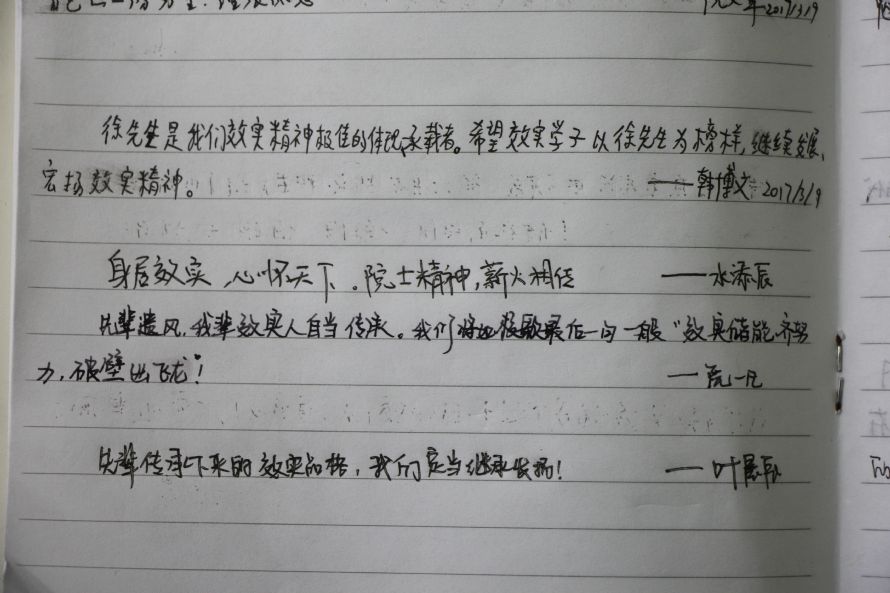 2017/3/9
徐先生是我们效实精神极佳的体现、承载者。希望效实学子以徐先生为榜样，继续发展、
宏扬效实精神。 ——韩博文 2017/3/9
身居效实，心怀天下。院士精神，薪火相传 ——水添辰
先辈遗风，我辈效实人自当传承。我们将如校歌最后一句一般“效实储能齐努
力，破壁出飞龙”！ ——一凡
先辈传承下来的效实品格，我们应当继承发扬！ ——叶辰